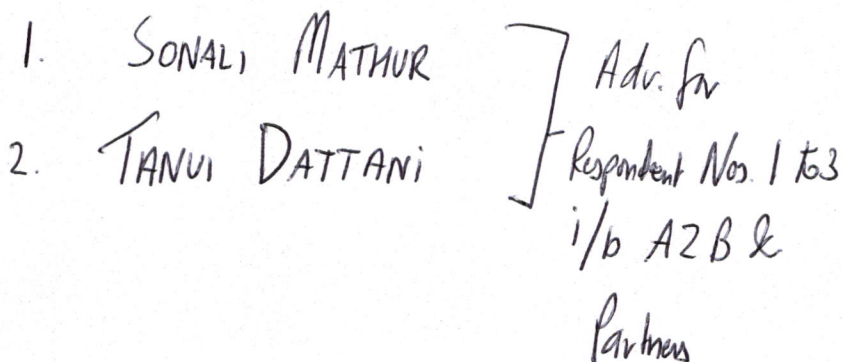 1. SONALI MATHUR
2. TANVI DATTANI
Adv. for
Respondent Nos. 1 to 3
i/b AZB &
Partners